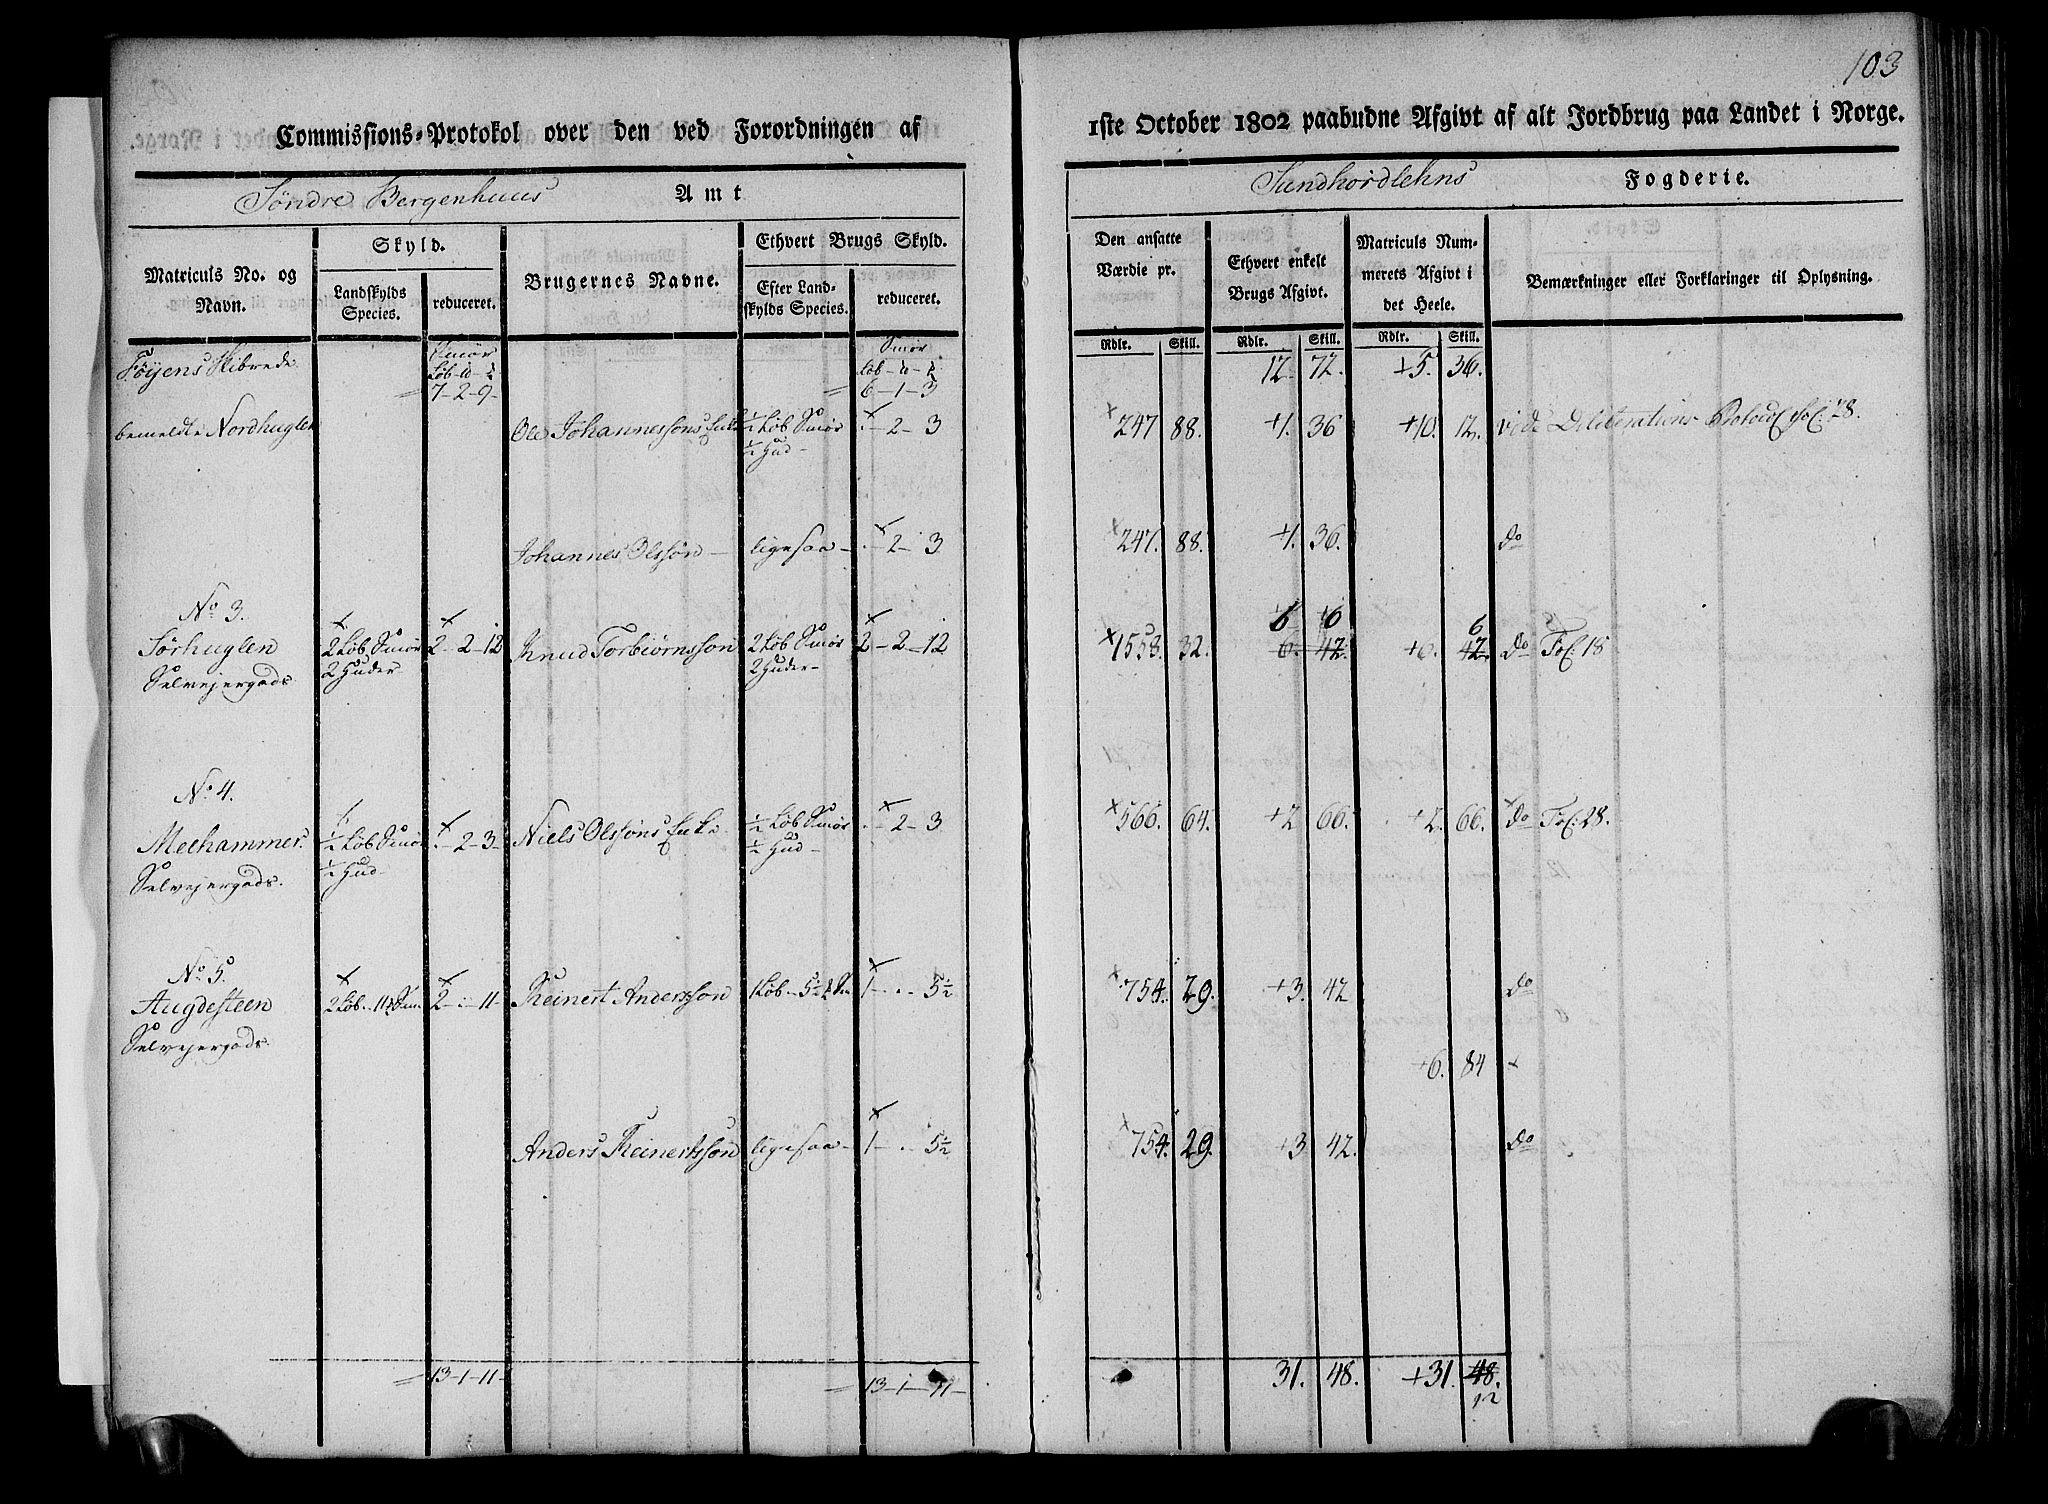 103
Commissions-Protokol over den ved Forordningen af
1ste October 1802 paabudne Afgivt af alt Jordbrug paa Landet i Norge.
Søndre Bergenhuus Amt
Sundhordlehns Fogderie.
Matriculs No. og Navn.
Skyld.
Landskylds Species.
reduceret.
Brugernes Navne.
Ethvert Brugs Skyld.
Efter Landskylds Species.
reduceret.
Den ansatte Værdie pr.
Rdlr. Skill.
Ethvert enkelt Brugs Afgivt.
Rdlr. Skill.
Matriculs Nummerets Afgivt i det Heele.
Rdlr. Skill.
Bemærkninger eller Forklaringer til Oplysning.
Føyens Skibrede Smör Smör 12. 72. +5. 36.
Løb - 7-2-9- 6-1-3
bemeldte Nordhuglen Ole Johannessøns Enke ½ Løb Smör × -2-3 ×247 88. +4. 36 +10. 12. vide Deliberations Protocol fol: 28.
½ Hud
Johannes Olssøn ligesaa × -2-3 ×247. 88. +4. 36. do
No 3.
Sørhuglen 2 Løb Smör 2-2-12 Knud Torbiørnssøn 2 Løb Smör 2-2-12 ×1553. 32. 6. 42. +6. 42. do Fol: 18
Selvejergods 2 Huder 2 Huder
No 4.
Meehammer ½ Løb Smör -2-3- Niels Olssøns Enke ½ Løb Smör -2-3 ×566. 64. +2 66. +2. 66. do Fol: 28.
Selvejergods. ½ Hud ½ Hud
No 5.
Augdesteen 2 Løb - 11 2-.-11- Reinert Anderssøn 1 Løb - 5½ 1-.-5½ ×754. 29. +3. 42 do
Selvejergods.
+6. 84
Anders Reinertssøn ligesaa 1-.-5½ ×754. 29. +3 42. do
13-1-11- 13-1-11- 31. 48. +31. 48.
12